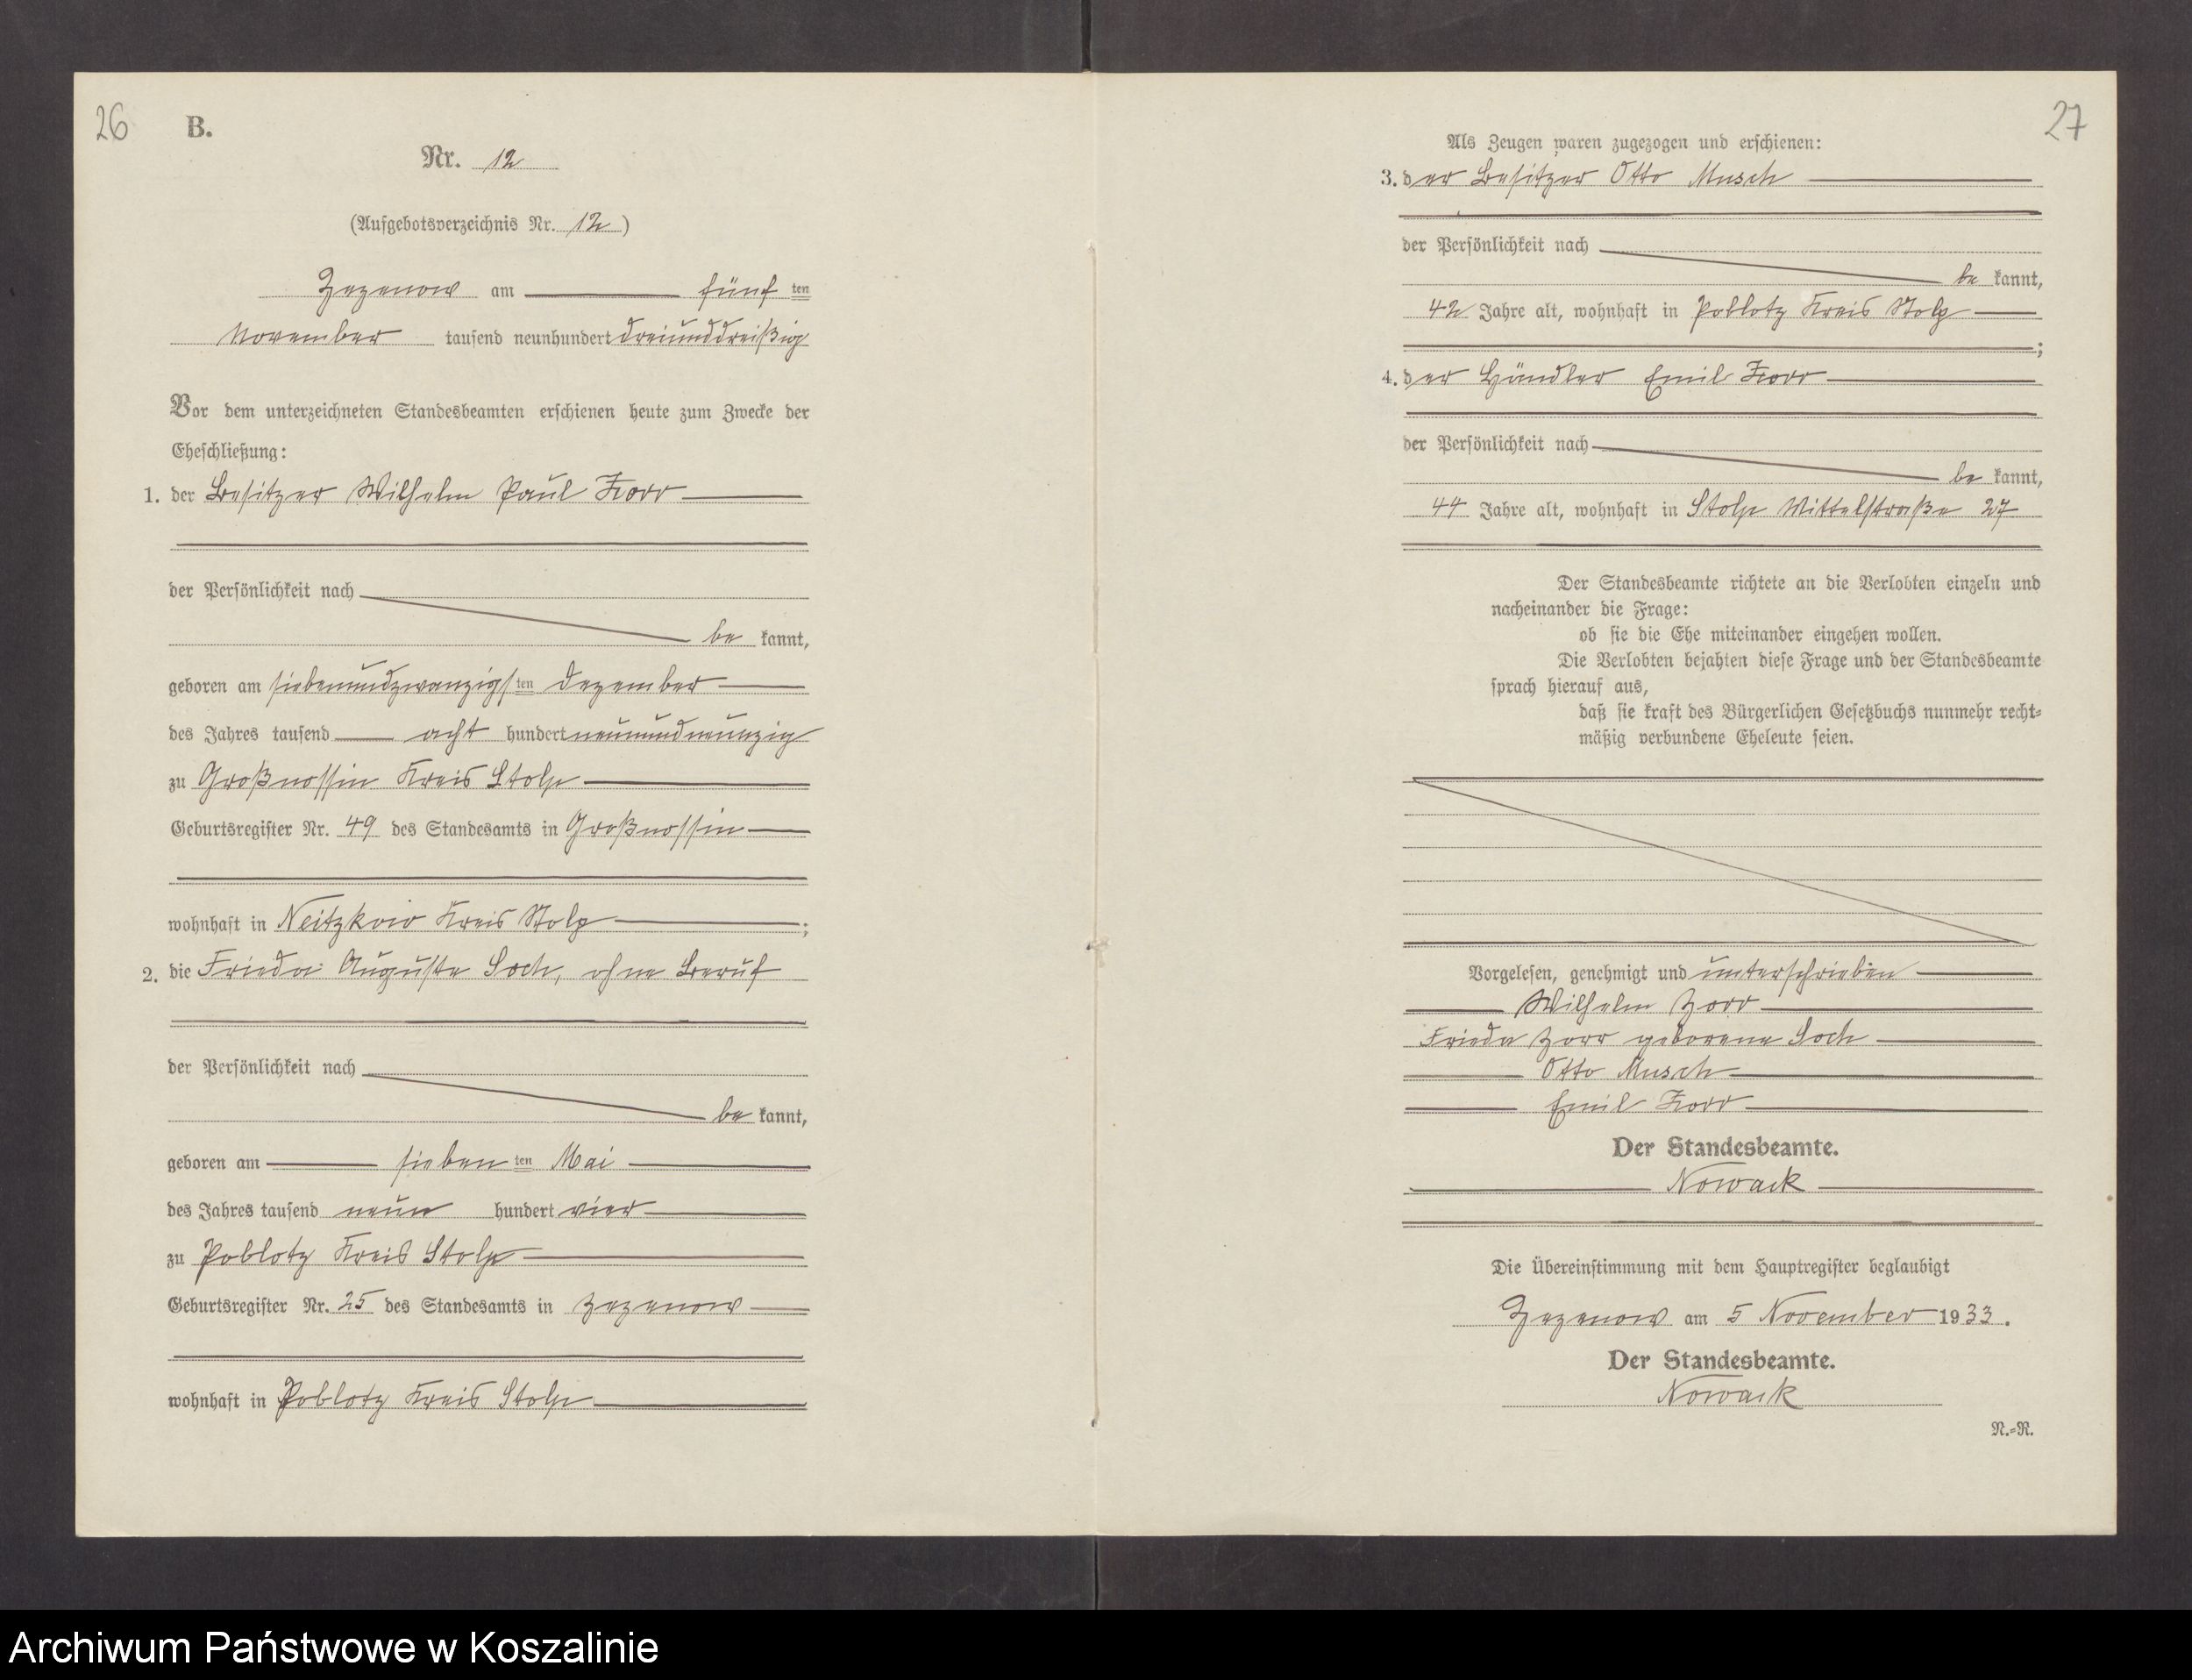 26
B.
Nr. 12
(Aufgebotsverzeichnis Nr. 12)
Zezenow am fünf ten
November tausend neunhundert dreiunddreißig
Vor dem unterzeichneten Standesbeamten erschienen heute zum Zwecke der
Eheschließung:
1. der Besitzer Wilhelm Paul Zorr
der Persönlichkeit nach
be kannt,
geboren am siebenundzwanzigs ten Dezember
des Jahres tausend acht hundert neunundneunzig
zu Großnossin Kreis Stolp
Geburtsregister Nr. 49 des Standesamts in Großnossin
wohnhaft in Neitzkow Kreis Stolp ;
2. die Frieda Auguste Soch, ohne Beruf
der Persönlichkeit nach
be kannt,
geboren am sieben ten Mai
des Jahres tausend neun hundert vier
zu Poblotz Kreis Stolp
Geburtsregister Nr. 25 des Standesamts in Zezenow
wohnhaft in Poblotz Kreis Stolp
27
Als Zeugen waren zugezogen und erschienen:
3. der Besitzer Otto Musch
der Persönlichkeit nach
be kannt,
42 Jahre alt, wohnhaft in Poblotz Kreis Stolp
;
4. der Händler Emil Zorr
der Persönlichkeit nach
be kannt,
44 Jahre alt, wohnhaft in Stolp Mittelstraße 27
Der Standesbeamte richtete an die Verlobten einzeln und
nacheinander die Frage:
ob sie die Ehe miteinander eingehen wollen.
Die Verlobten bejahten diese Frage und der Standesbeamte
sprach hierauf aus,
daß sie kraft des Bürgerlichen Gesetzbuchs nunmehr recht-
mäßig verbundene Eheleute seien.
Vorgelesen, genehmigt und unterschrieben
Wilhelm Zorr
Frieda Zorr geborene Soch
Otto Musch
Emil Zorr
Der Standesbeamte.
Nowack
Die Übereinstimmung mit dem Hauptregister beglaubigt
Zezenow am 5 November 1933.
Der Standesbeamte.
Nowack
N.-R.
Archiwum Państwowe w Koszalinie